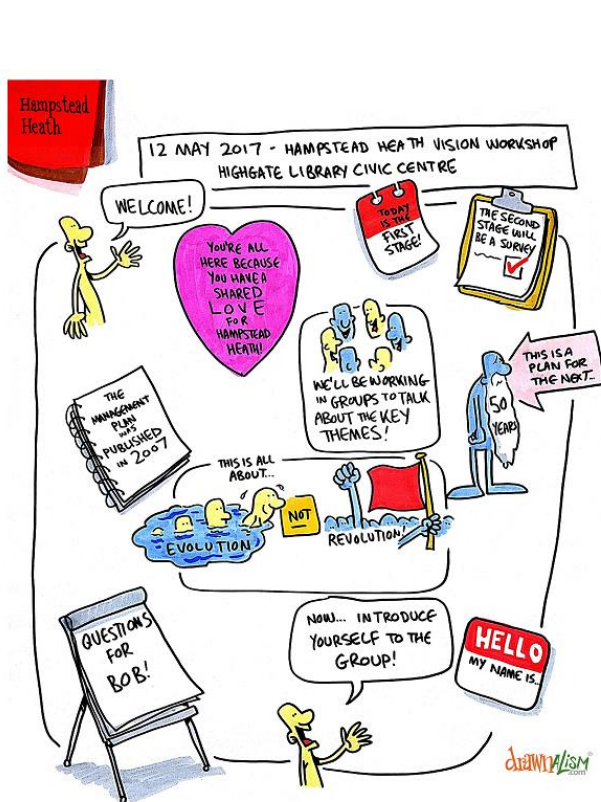 Hampstead
Heath
12 MAY 2017 - HAMPSTEAD HEATH VISION WORKSHOP
HIGHGATE LIBRARY CIVIC CENTRE
WELCOME!
YOU'RE ALL
HERE BECAUSE
YOU HAVE A
SHARED
LOVE
FOR
HAMPSTEAD
HEATH!
TODAY
IS THE
FIRST
STAGE!
THE SECOND
STAGE WILL
BE A SURVEY
WE'LL BE WORKING
IN GROUPS TO TALK
ABOUT THE KEY
THEMES!
THIS IS A
PLAN FOR
THE NEXT...
50
YEARS
THE
MANAGEMENT
PLAN
WAS
PUBLISHED
IN 2007
THIS IS ALL
ABOUT...
EVOLUTION
NOT
REVOLUTION!
QUESTIONS
FOR
BOB!
NOW... INTRODUCE
YOURSELF TO THE
GROUP!
HELLO
MY NAME IS...
drawnalism
.com